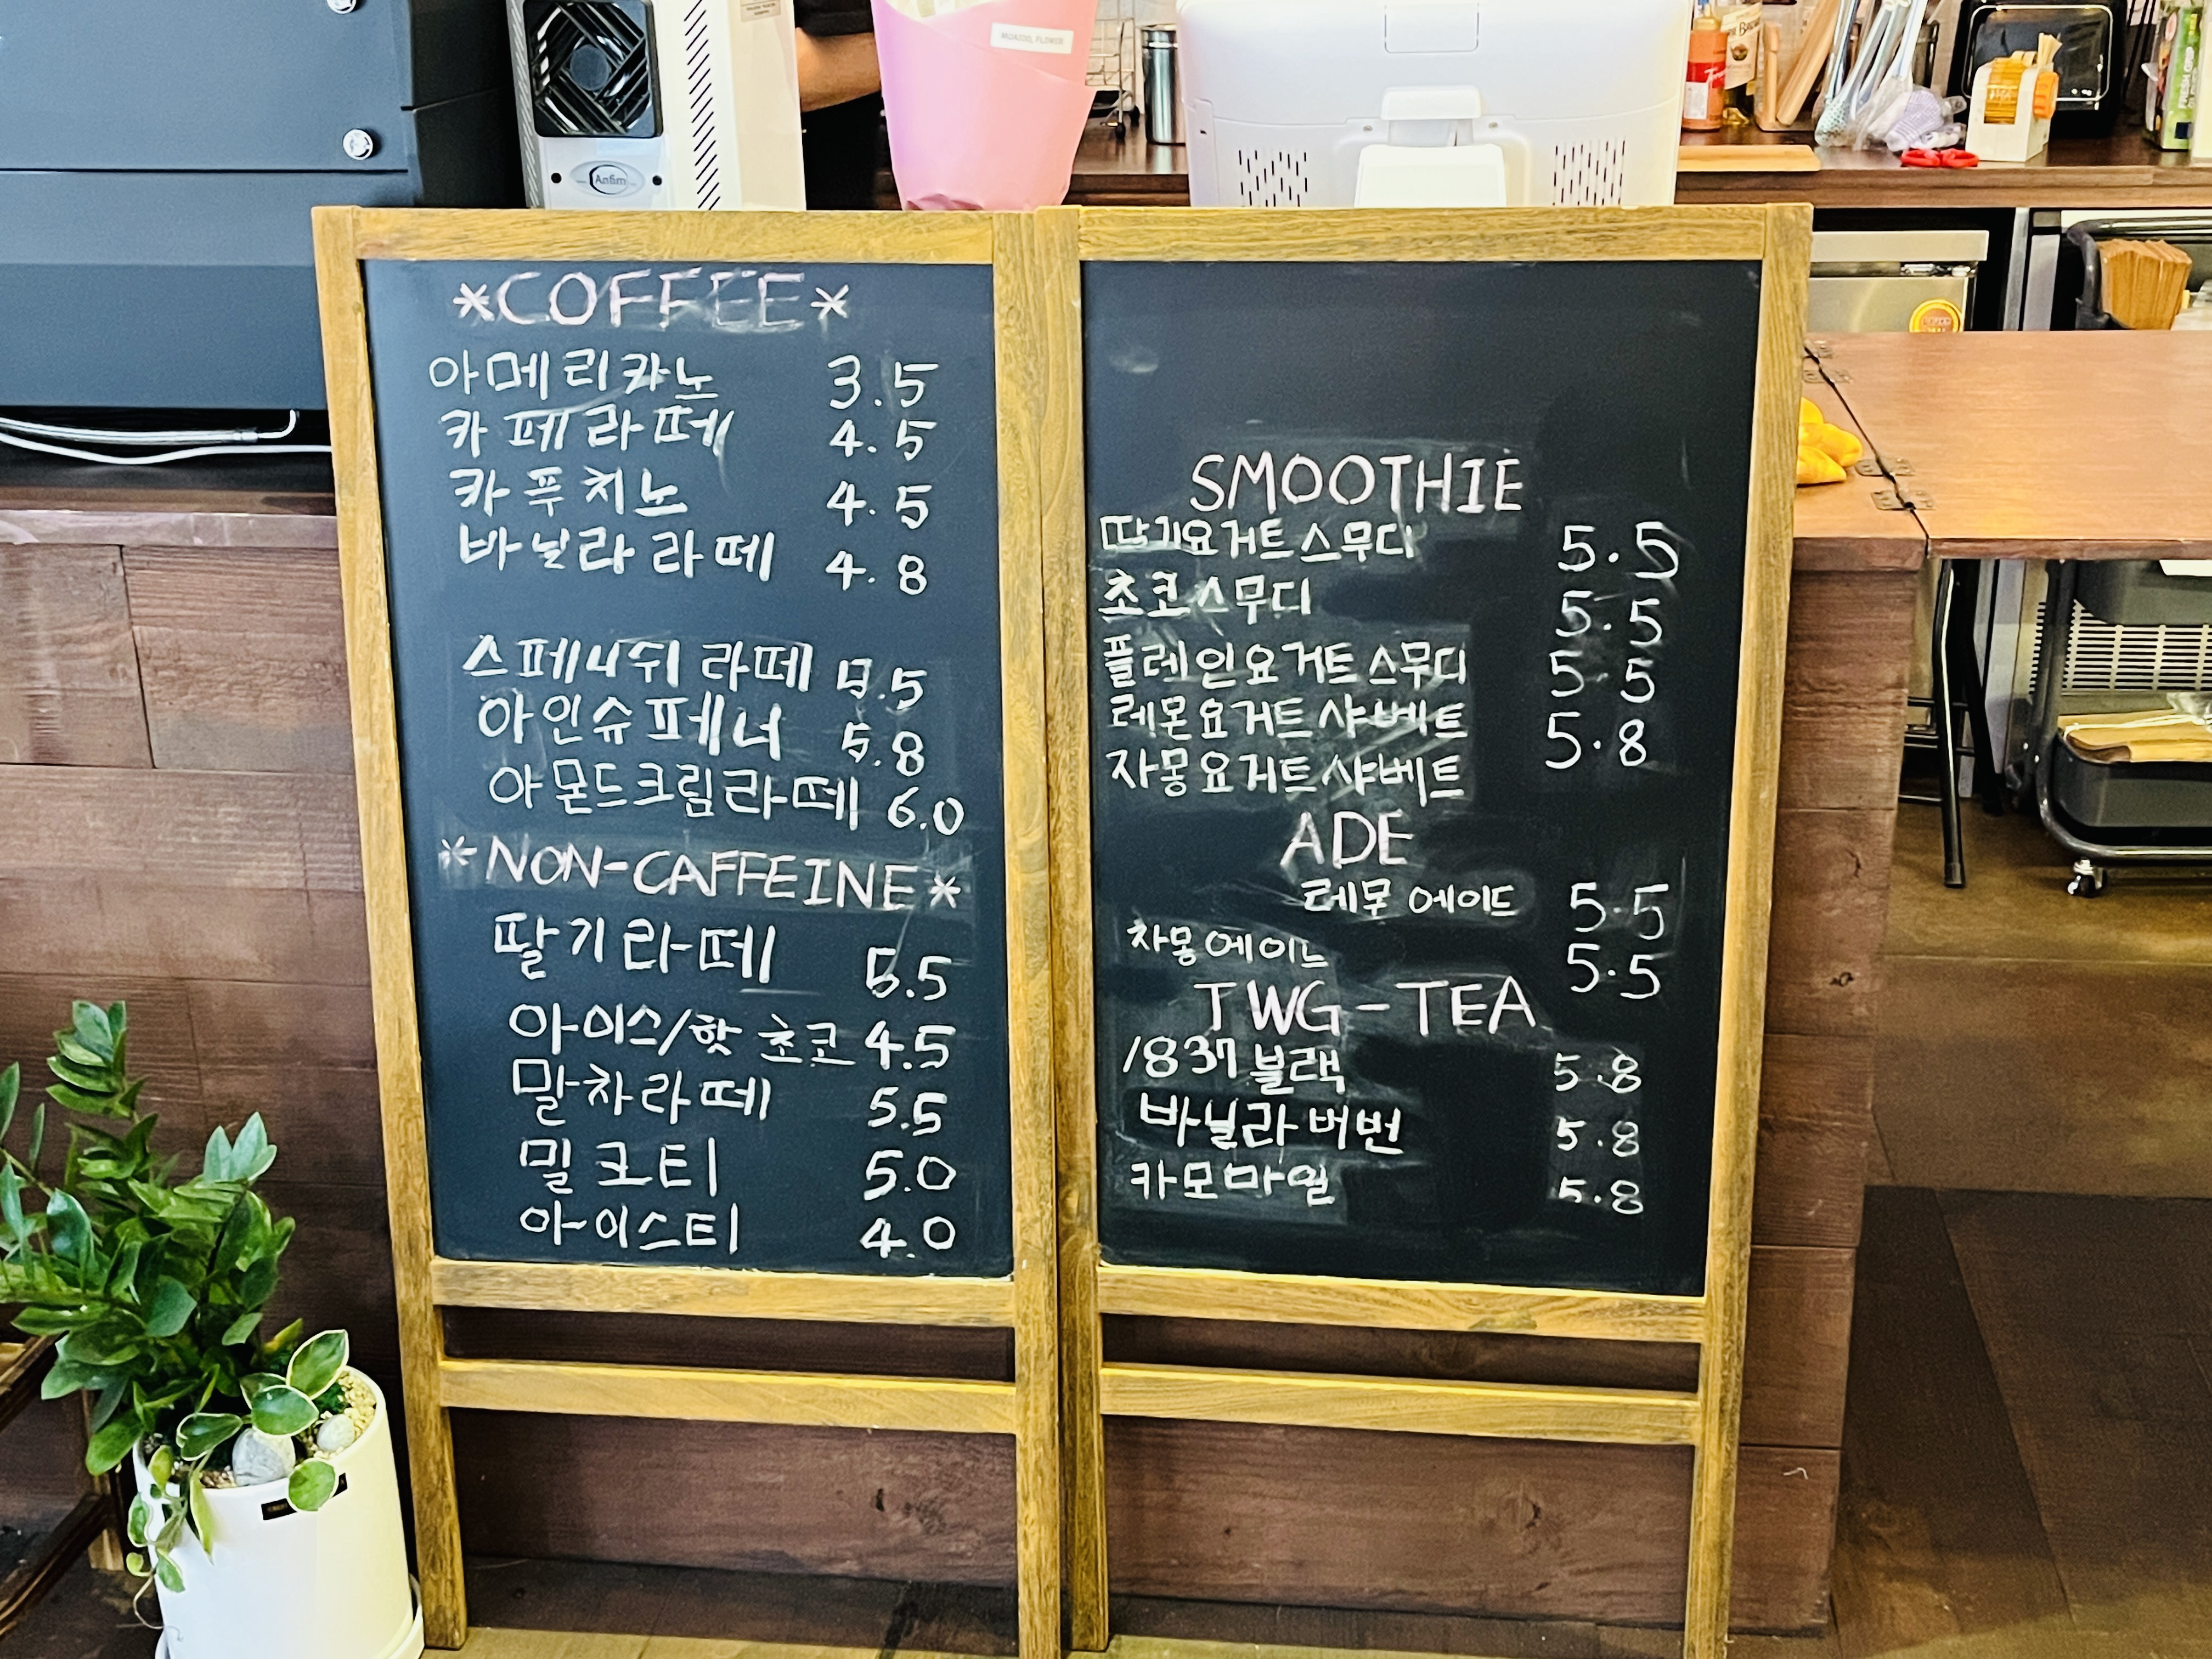 Anfim
*COFFEE*
아메리카노 3.5
카페라떼 4.5
카푸치노 4.5
바닐라라떼 4.8
스페니쉬 라떼 5.5
아인슈페너 5.8
아몬드크림라떼 6.0
*NON-CAFFEINE*
딸기라떼 5.5
아이스/핫 초코 4.5
말차라떼 5.5
밀크티 5.0
아이스티 4.0
SMOOTHIE
딸기요거트스무디 5.5
초코스무디 5.5
플레인요거트스무디 5.5
레몬요거트샤베트 5.8
자몽요거트샤베트
ADE
레몬에이드 5.5
자몽에이드 5.5
TWG-TEA
1837블랙 5.8
바닐라버번 5.8
카모마일 5.8